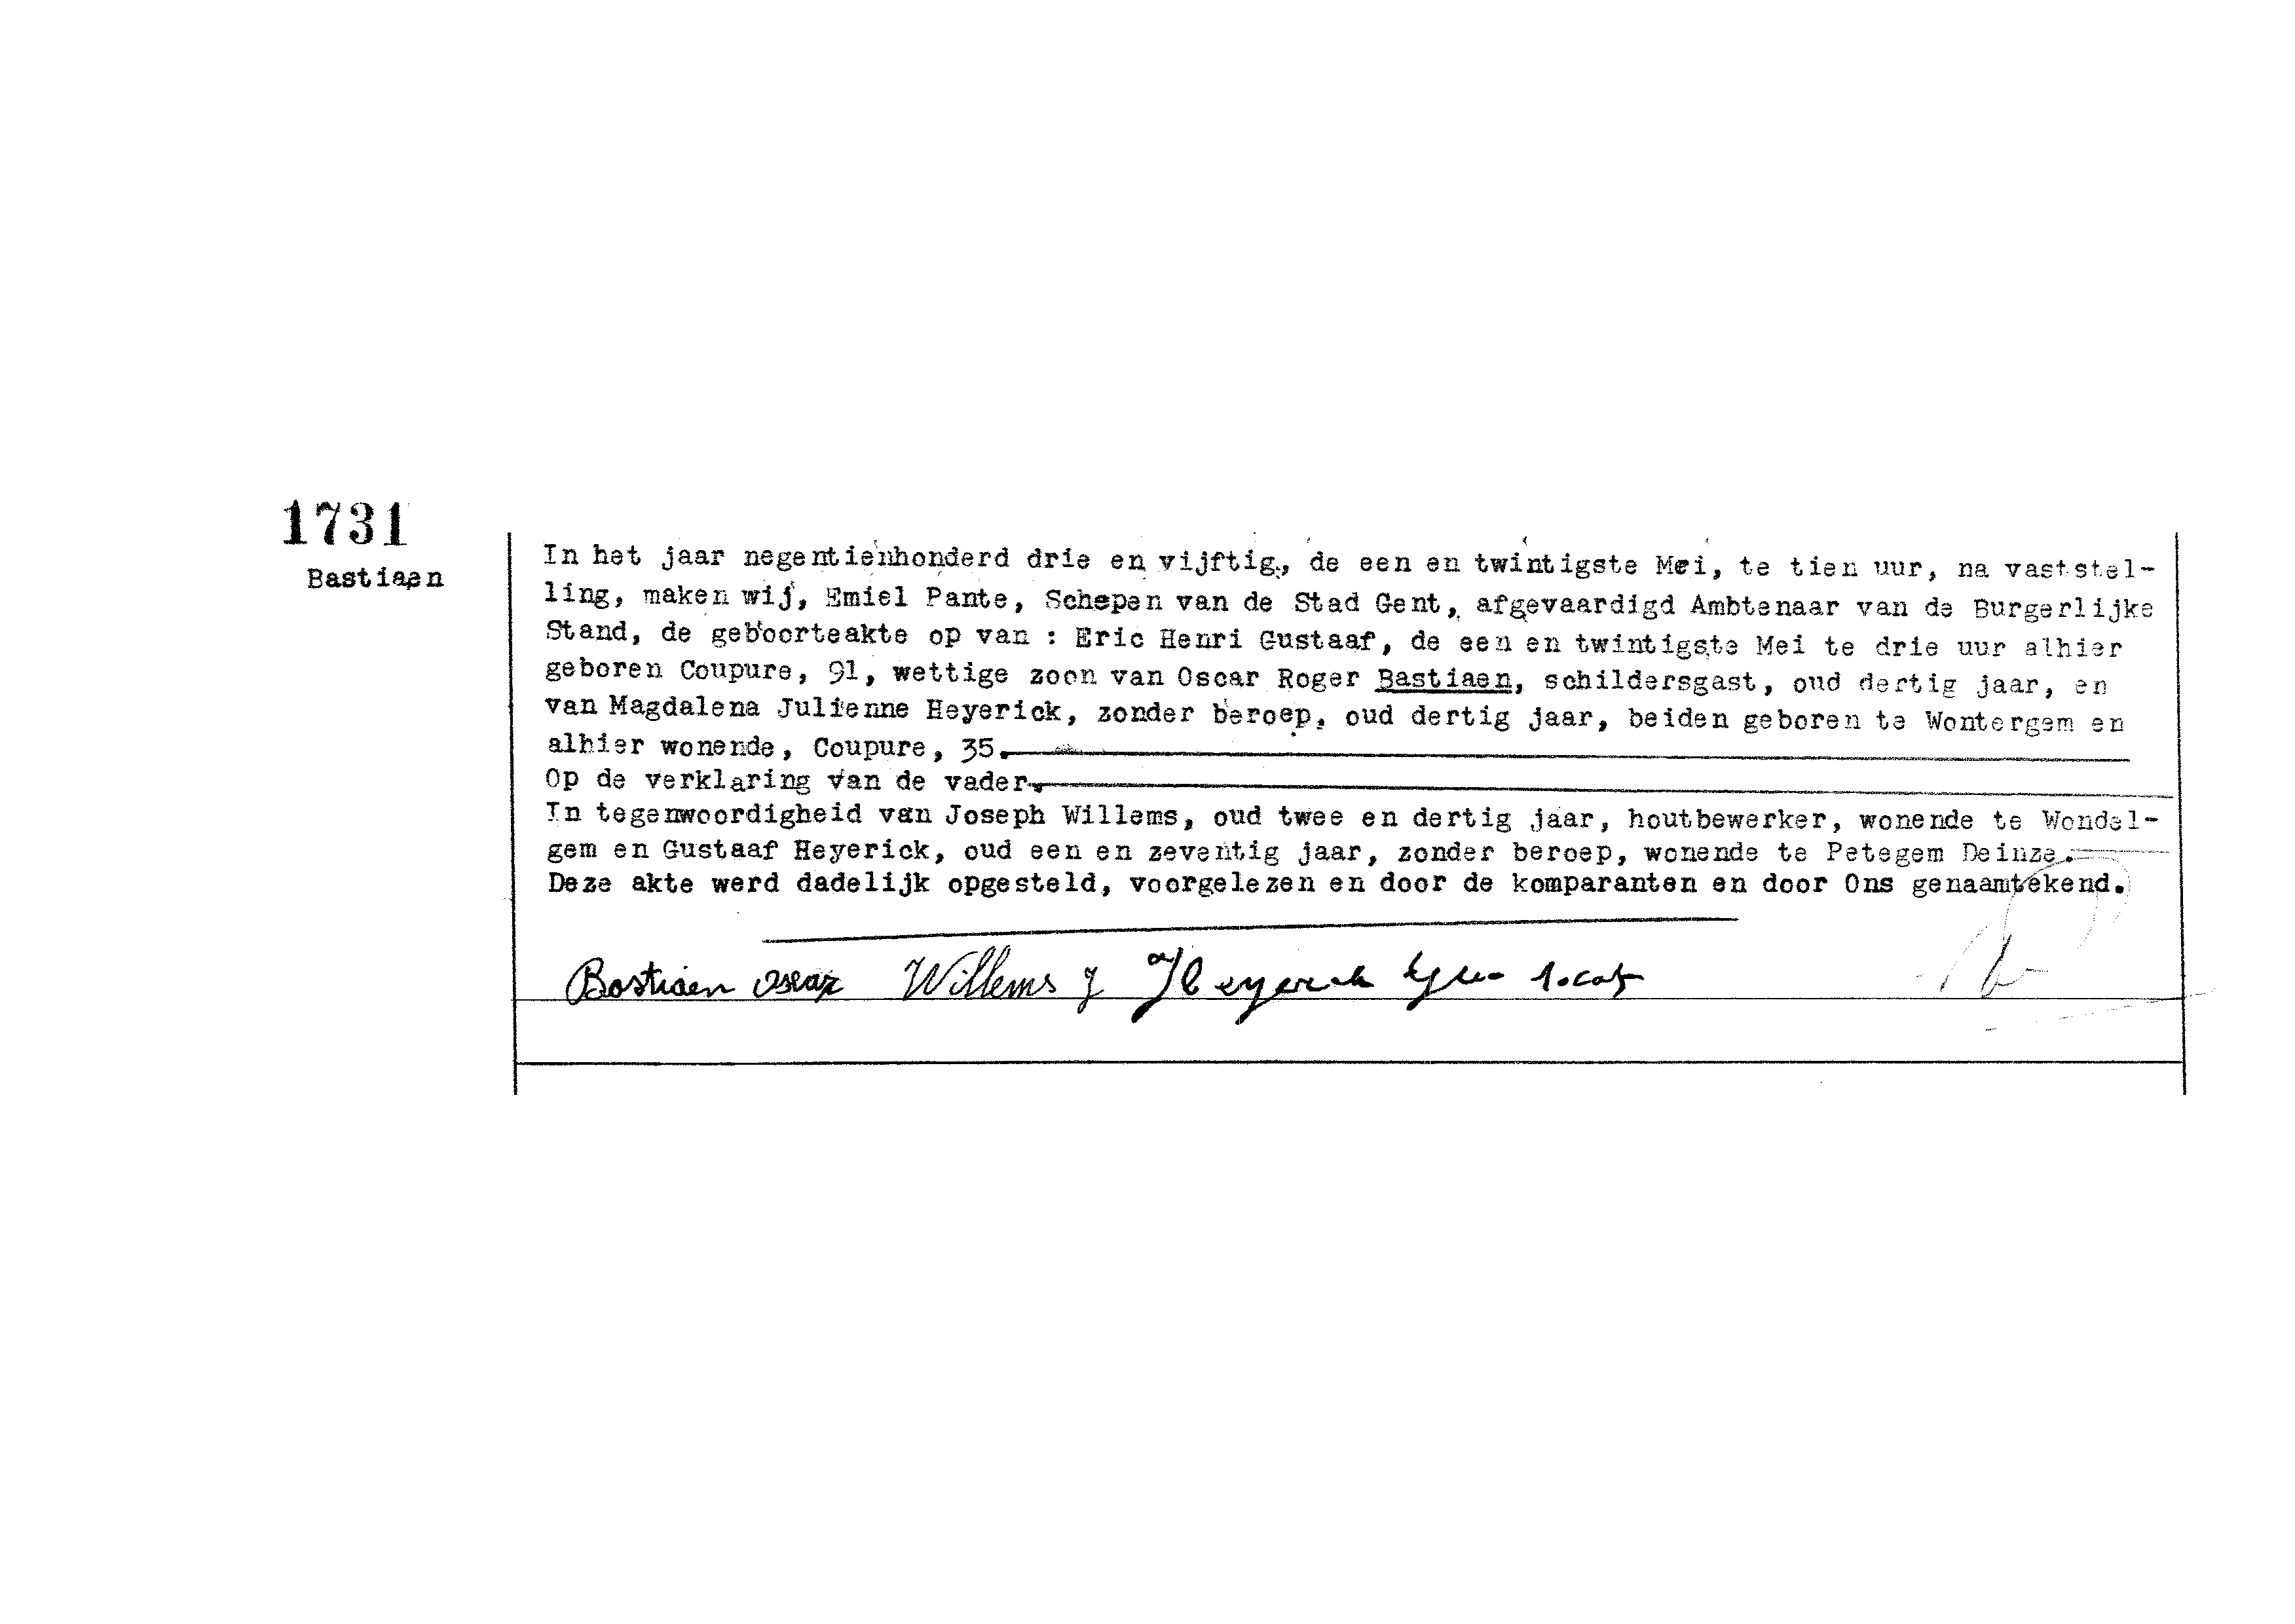 1731
Bastiaen
In het jaar negentienhonderd drie en vijftig, de een en twintigste Mei, te tien uur, na vaststel-
ling, maken wij, Emiel Pante, Schepen van de Stad Gent, afgevaardigd Ambtenaar van de Burgerlijke
Stand, de geboorteakte op van : Eric Henri Gustaaf, de een en twintigste Mei te drie uur alhier
geboren Coupure, 91, wettige zoon van Oscar Roger Bastiaen, schildersgast, oud dertig jaar, en
van Magdalena Julienne Heyerick, zonder beroep, oud dertig jaar, beiden geboren te Wontergem en
alhier wonende, Coupure, 35.
Op de verklaring van de vader.
In tegenwoordigheid van Joseph Willems, oud twee en dertig jaar, houtbewerker, wonende te Wondel-
gem en Gustaaf Heyerick, oud een en zeventig jaar, zonder beroep, wonende te Petegem Deinze.
Deze akte werd dadelijk opgesteld, voorgelezen en door de komparanten en door Ons genaamtekend.
Bastiaen Oscar Willems J Heyerick